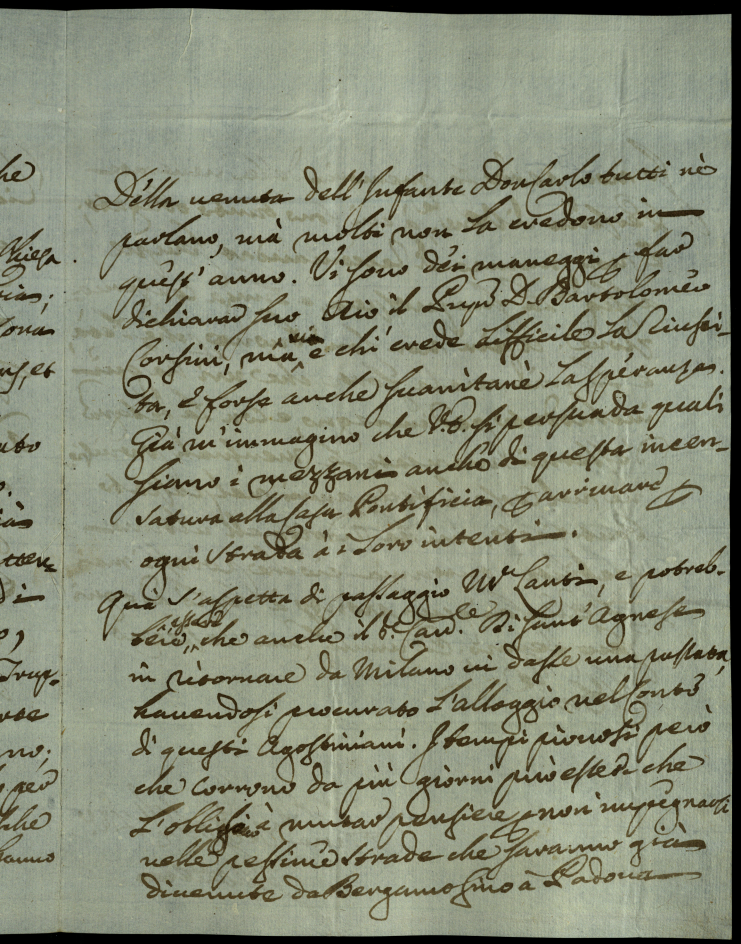 he
Chiesa
ria;
sona
et
ato
già
di
o,
Trup-
rte
no;
per
che
hanno
Della venuta dell'Infante Don Carlo tutti nè
parlano, mà molti non la credono in
quest'anno. Vi sono dei maneggi p far
dichiarar suo Aio il D. Bartolomeo
Corsini, mà, vi è chi crede difficile la riusci-
ta, e forse anche suanitanè la speranza.
Già m'immagino che V.E. si persuada quali
siano i mezzani anche di questa incen-
satura alla Casa Pontificia, p arrivare p
ogni strada à i loro intenti.
Quà s'aspetta di passaggio Mr Lanti, e potreb-
be essere, che anche il Card.le di Sant'Agnese
in ritornare da Milano ui dasse una passata,
hauendosi procurato l'alloggio nel Conto
di questi Agostiniani. I tempi piouosi però
che corrono da più giorni può esser che
l'oblighino à mutar pensiere p non impegnarsi
nelle pessime strade che saranno già
diuenute da Bergamo sino à Padoua